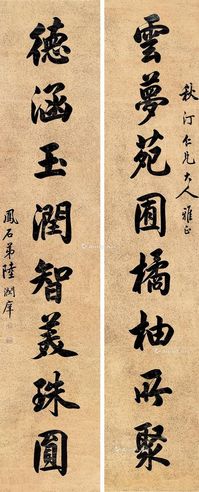 秋汀仁兄大人雅正
雲夢苑囿橘柚所聚
德涵玉潤智美珠圓
鳳石弟陸潤庠